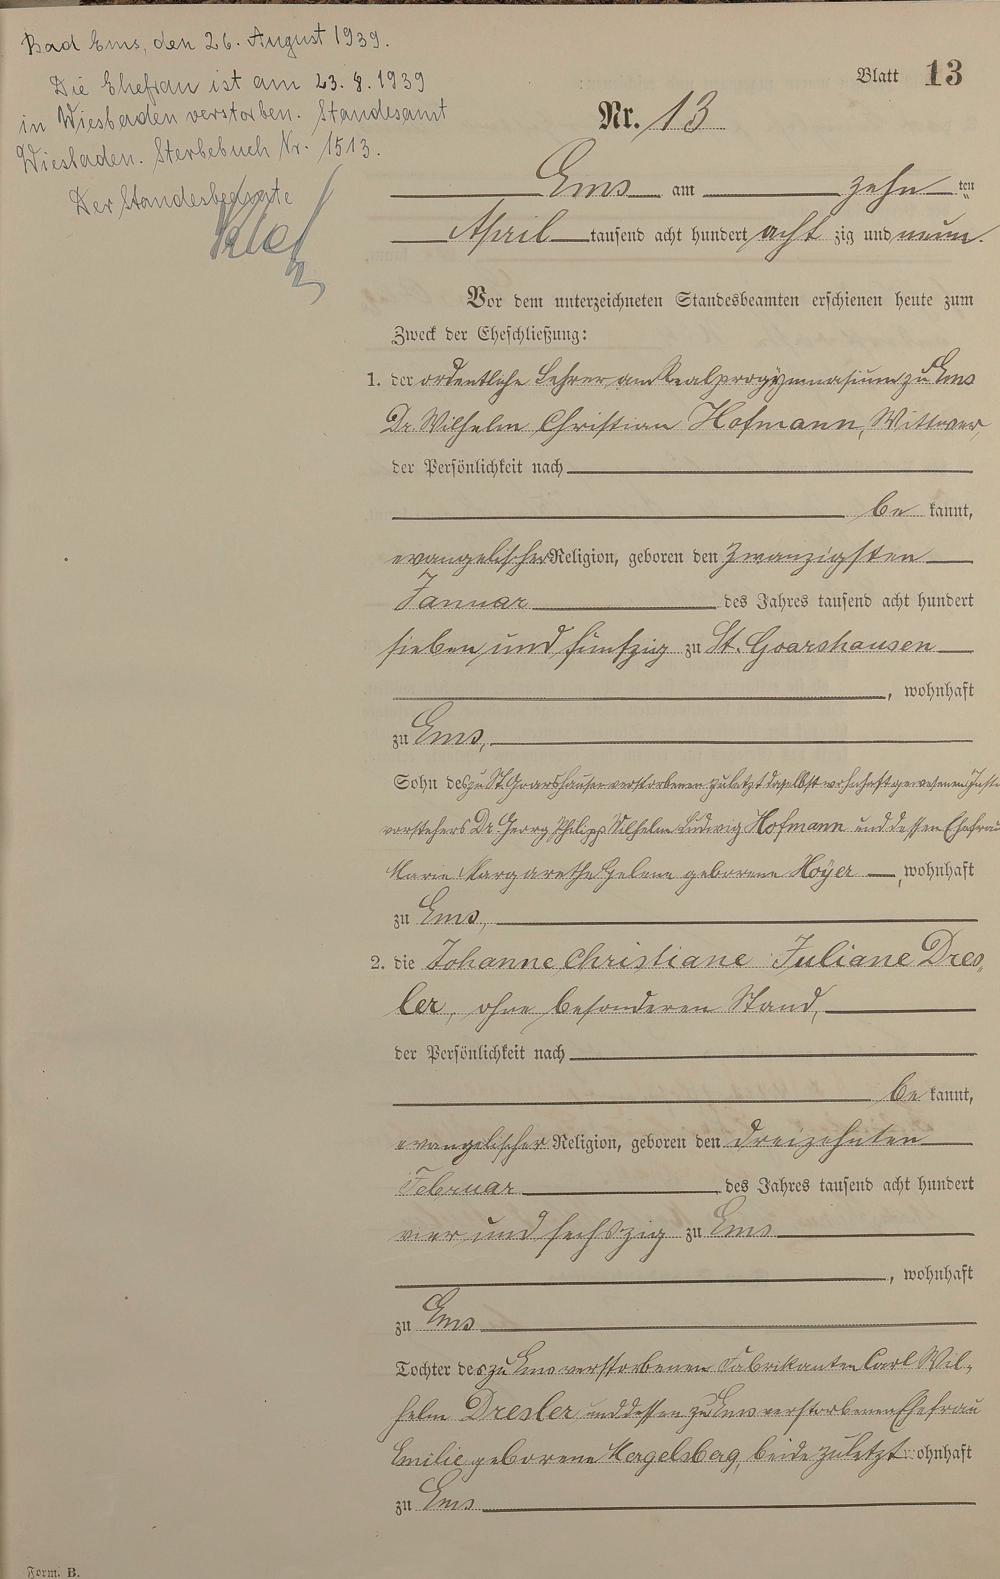 Bad Ems, den 26. August 1939.
Die Ehefrau ist am 23.8.1939
in Wiesbaden verstorben. Standesamt
Wiesbaden. Sterbebuch Nr. 1513.
Der Standesbeamte
Blatt 13
Nr. 13
Ems am zehn ten
April tausend acht hundert acht zig und neun.
Vor dem unterzeichneten Standesbeamten erschienen heute zum
Zweck der Eheschließung:
1. der ordentliche Lehrer am Realprogymnasium zu Ems
Dr. Wilhelm Christian Hofmann, Wittwer,
der Persönlichkeit nach
be kannt,
evangelischer Religion, geboren den zwanzigsten
Januar des Jahres tausend acht hundert
sieben und fünfzig zu St. Goarshausen
, wohnhaft
zu Ems,
Sohn des zu St. Goarshausen verstorbenen zuletzt daselbst wohnhaft gewesenen
vorstehers Dr. Georg Philipp Wilhelm Ludwig Hofmann und dessen Ehefrau
Marie Margarethe Helene geborene Hoÿer , wohnhaft
zu Ems,
2. die Johanne Christiane Juliane Dres,
ler, ohne besonderen Stand,
der Persönlichkeit nach
be kannt,
evangelischer Religion, geboren den dreizehnten
Februar des Jahres tausend acht hundert
vier und sechszig zu Ems
, wohnhaft
zu Ems
Tochter des zu Ems verstorbenen Fabrikanten Carl Wil-
helm Dresler und dessen zu Ems verstorbenen Ehefrau
Emilie geborene beide zuletzt wohnhaft
zu Ems
Form. B.